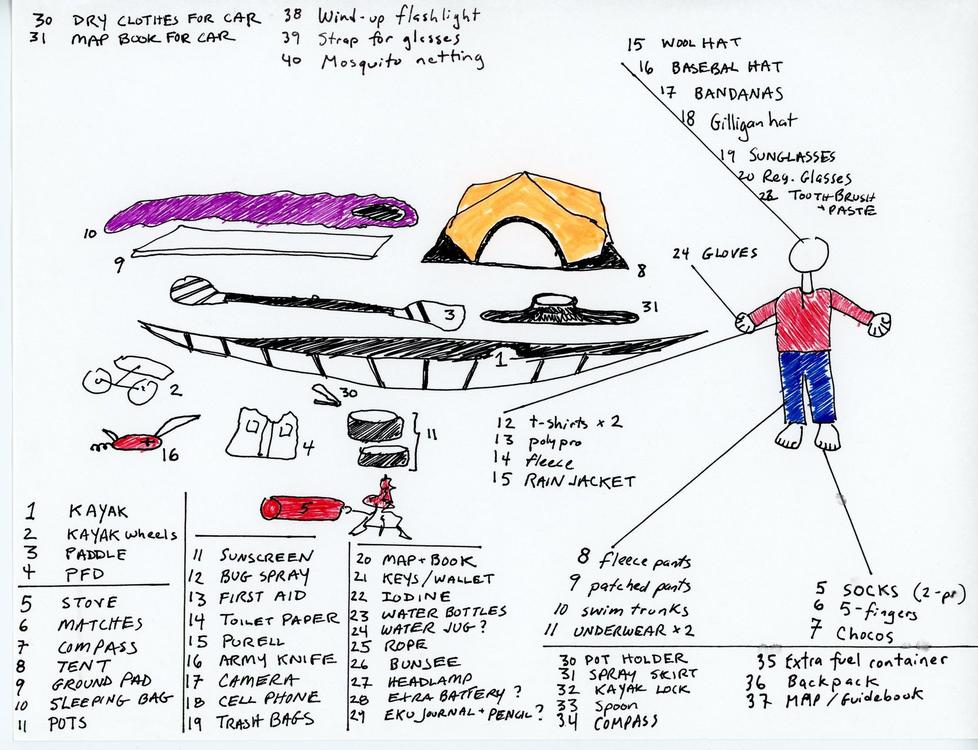 30 DRY CLOTHES FOR CAR
31 MAP BOOK FOR CAR
38 Wind-up flashlight
39 Strap for glasses
40 Mosquito netting
15 WOOL HAT
16 BASEBAL HAT
17 BANDANAS
18 Gilligan hat
19 SUNGLASSES
20 Reg. Glasses
TOOTHBRUSH
+ PASTE
24 GLOVES
10
9
8
3
31
1
2
30
16
4
11
5
12 t-shirts x 2
13 polypro
14 fleece
15 RAIN JACKET
8 fleece pants
9 patched pants
10 swim trunks
11 UNDERWEAR x 2
5 SOCKS (2-pr)
6 5-fingers
7 Chocos
1 KAYAK
2 KAYAK wheels
3 PADDLE
4 PFD
5 STOVE
6 MATCHES
7 COMPASS
8 TENT
9 GROUND PAD
10 SLEEPING BAG
11 POTS
11 SUNSCREEN
12 BUG SPRAY
13 FIRST AID
14 TOILET PAPER
15 PURELL
16 ARMY KNIFE
17 CAMERA
18 CELL PHONE
19 TRASH BAGS
20 MAP + BOOK
21 KEYS/WALLET
22 IODINE
23 WATER BOTTLES
24 WATER JUG?
25 ROPE
26 BUNJEE
27 HEADLAMP
28 EXTRA BATTERY?
29 EKU JOURNAL + PENCIL?
30 POT HOLDER
31 SPRAY SKIRT
32 KAYAK LOCK
33 Spoon
34 COMPASS
35 Extra fuel container
36 Backpack
37 MAP/Guidebook